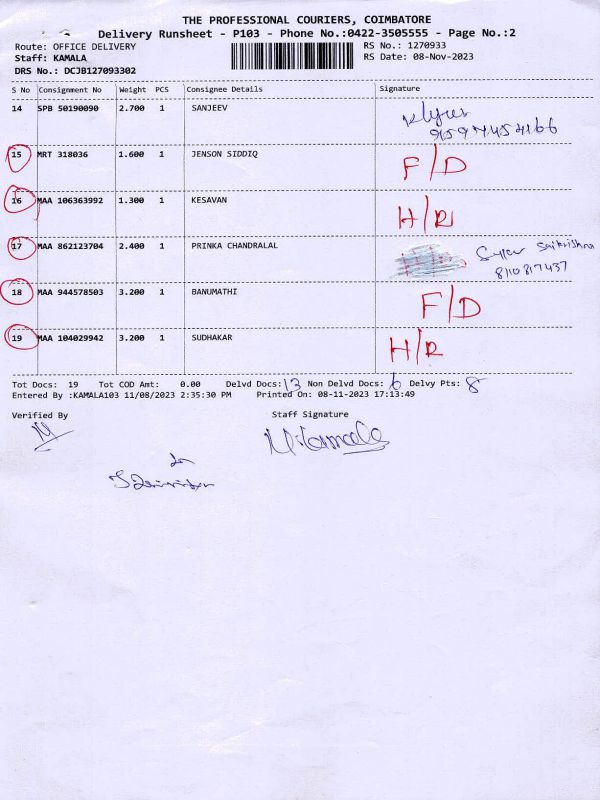 THE PROFESSIONAL COURIERS, COIMBATORE
Delivery Runsheet - P103 - Phone No.:0422-3505555 - Page No.:2
Route: OFFICE DELIVERY RS No.: 1270933
Staff: KAMALA RS Date: 08-Nov-2023
DRS No.: DCJB127093302
S No Consignment No Weight PCS Consignee Details Signature
14 SPB 50190090 2.700 1 SANJEEV
15 MRT 318036 1.600 1 JENSON SIDDIQ F/D
16 MAA 106363992 1.300 1 KESAVAN H/R
17 MAA 862123704 2.400 1 PRINKA CHANDRALAL Saikrishna
8110817437
18 MAA 944578503 3.200 1 BANUMATHI F/D
19 MAA 104029942 3.200 1 SUDHAKAR H/R
Tot Docs: 19 Tot COD Amt: 0.00 Delvd Docs: 13 Non Delvd Docs: 6 Delvy Pts: 8
Entered By :KAMALA103 11/08/2023 2:35:30 PM Printed On: 08-11-2023 17:13:49
Verified By Staff Signature
M.Kamala